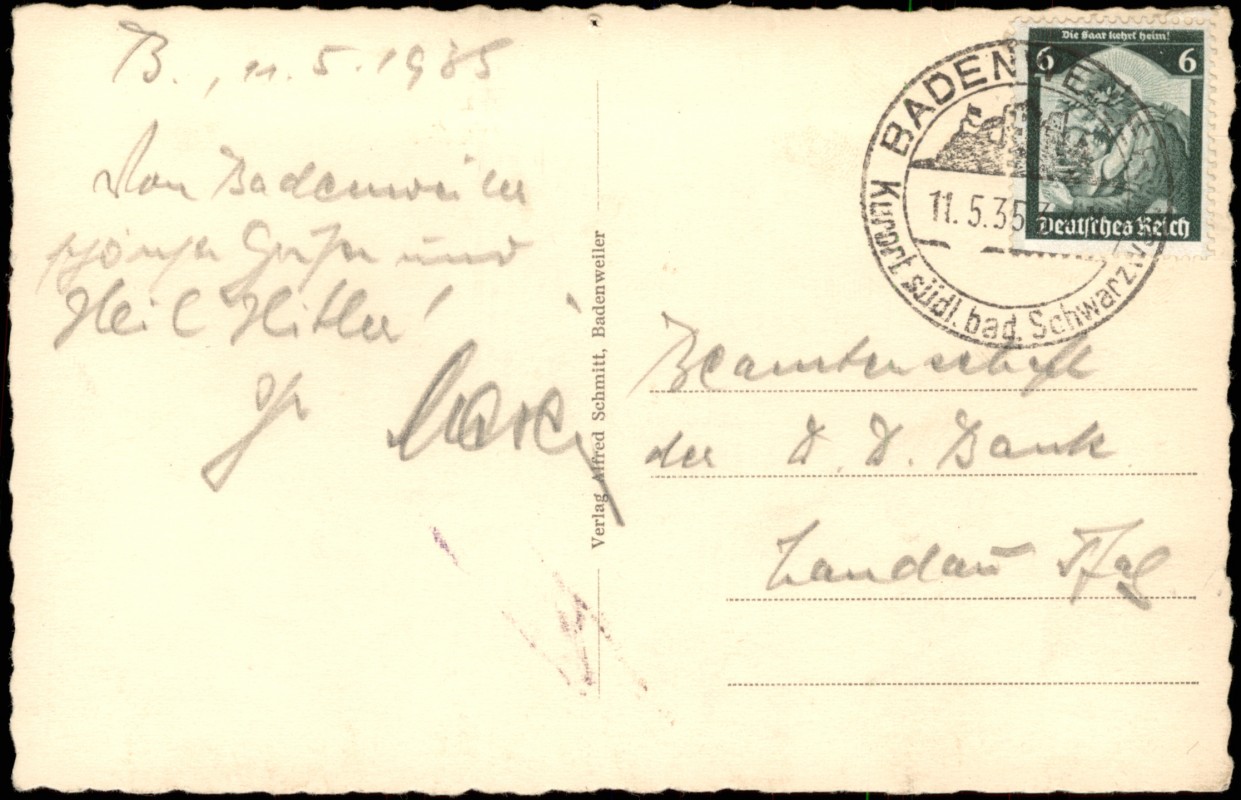 B., 11.5.1935
Von Badenweiler
schöne Grüße und
Heil Hitler!
Ihr
Verlag Alfred Schmitt, Badenweiler
BADENWEILER
11.5.35
Kurort südl. bad. Schwarzw
Die Saar kehrt heim!
6 6
Deutsches Reich
Beamtenschaft
der D. D. Bank
Landau Pfalz